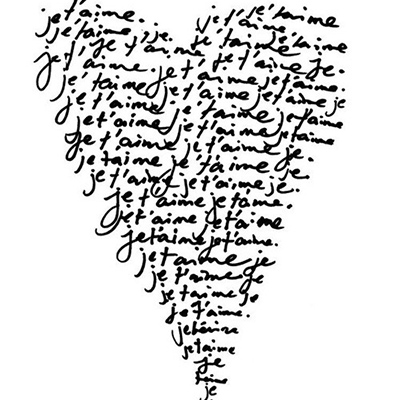 je t'aime. je t'aime
je t'aime. je. je t'aime
je t'aime. je t'aime je.
je t'aime. je t'aime je t'aime.
je t'aime je t'aime je t'aime je
je t'aime. je t'aime je t'aime
je t'aime je t'aime je.
je t'aime je t'aime je.
je t'aime je t'aime je.
je t'aime je t'aime.
je t'aime je t'aime
je t'aime je t'aime.
je t'aime je
je t'aime je
je t'aime je
je t'aime.
je t'aime
je
t'aime
je